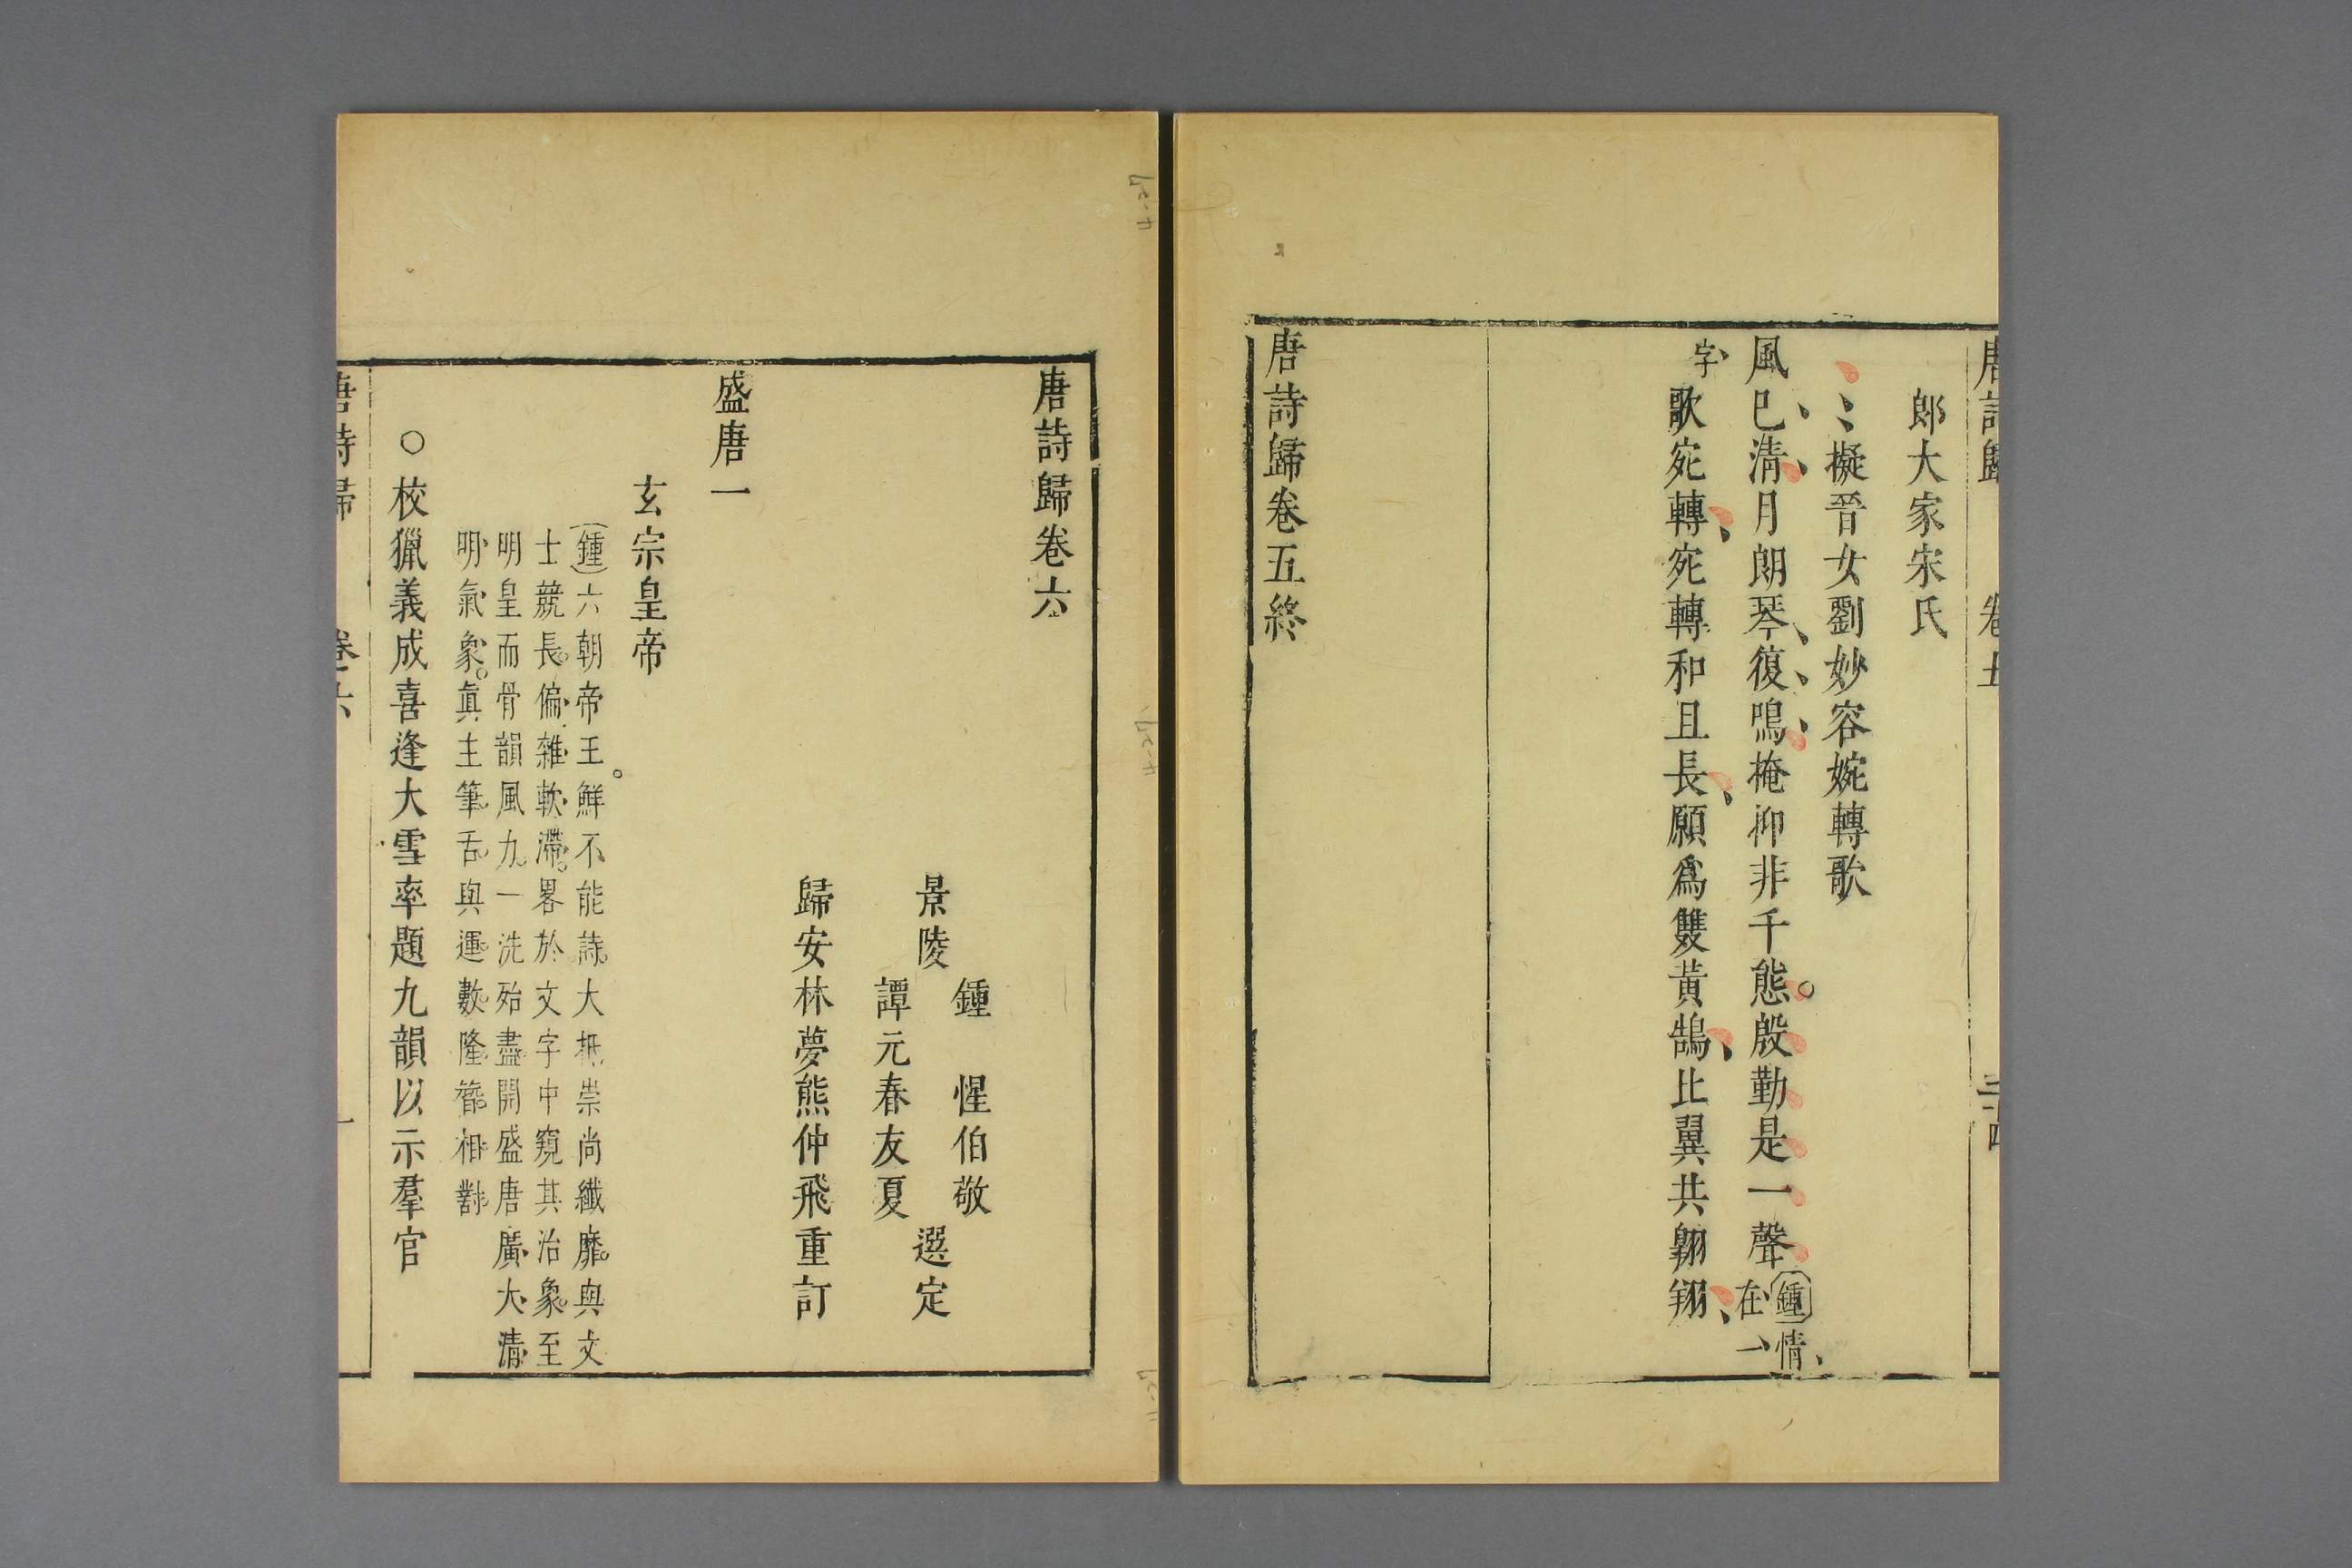 唐詩歸 卷五 三十四
郎大家宋氏
擬晉女劉妙容婉轉歌
風已清月朗琴復鳴掩抑非千態殷勤是一聲 鍾 情
在一
字
歌宛轉宛轉和且長願爲雙黃鵠比翼共翱翔
唐詩歸卷五終
唐詩歸卷六
鍾 惺伯敬
景陵 選定
譚元春友夏
歸安林夢熊仲飛重訂
盛唐一
玄宗皇帝
鍾 六朝帝王鮮不能詩大抵崇尚纖靡與文
士競長偏雜軟滯畧於文字中窺其治象至
明皇而骨韻風力一洗殆盡開盛唐廣大清
明氣象眞主筆舌與運數隆替相對
○校獵義成喜逢大雪率題九韻以示羣官
唐詩歸 卷六 一